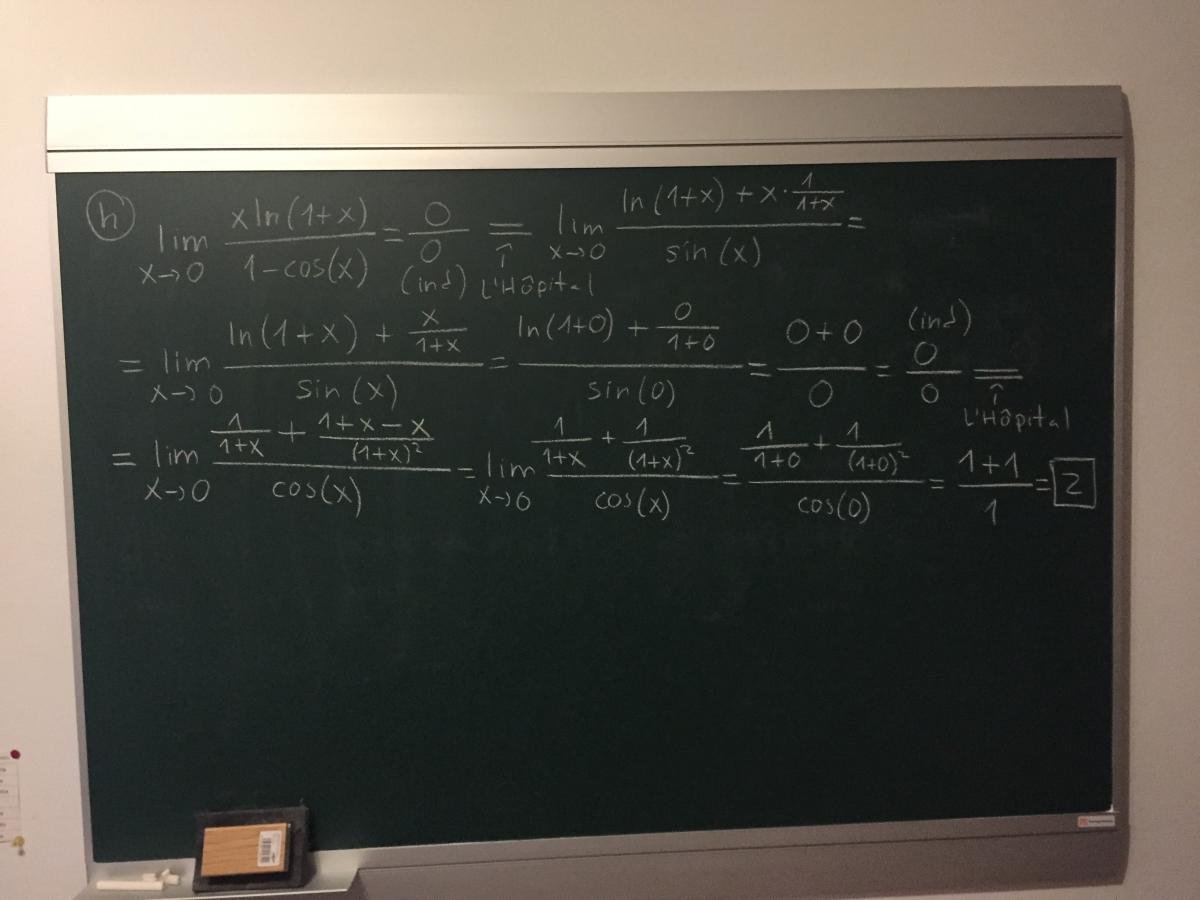 h) lim x→0 x ln(1+x) / 1-cos(x) = 0/0 (ind) = ↑ L'Hôpital lim x→0 ln(1+x) + x · 1/1+x / sin(x) =
= lim x→0 ln(1+x) + x/1+x / sin(x) = ln(1+0) + 0/1+0 / sin(0) = 0+0 / 0 = (ind) 0/0 = ↑ L'Hôpital
= lim x→0 1/1+x + 1+x-x/(1+x)² / cos(x) = lim x→0 1/1+x + 1/(1+x)² / cos(x) = 1/1+0 + 1/(1+0)² / cos(0) = 1+1 / 1 = 2